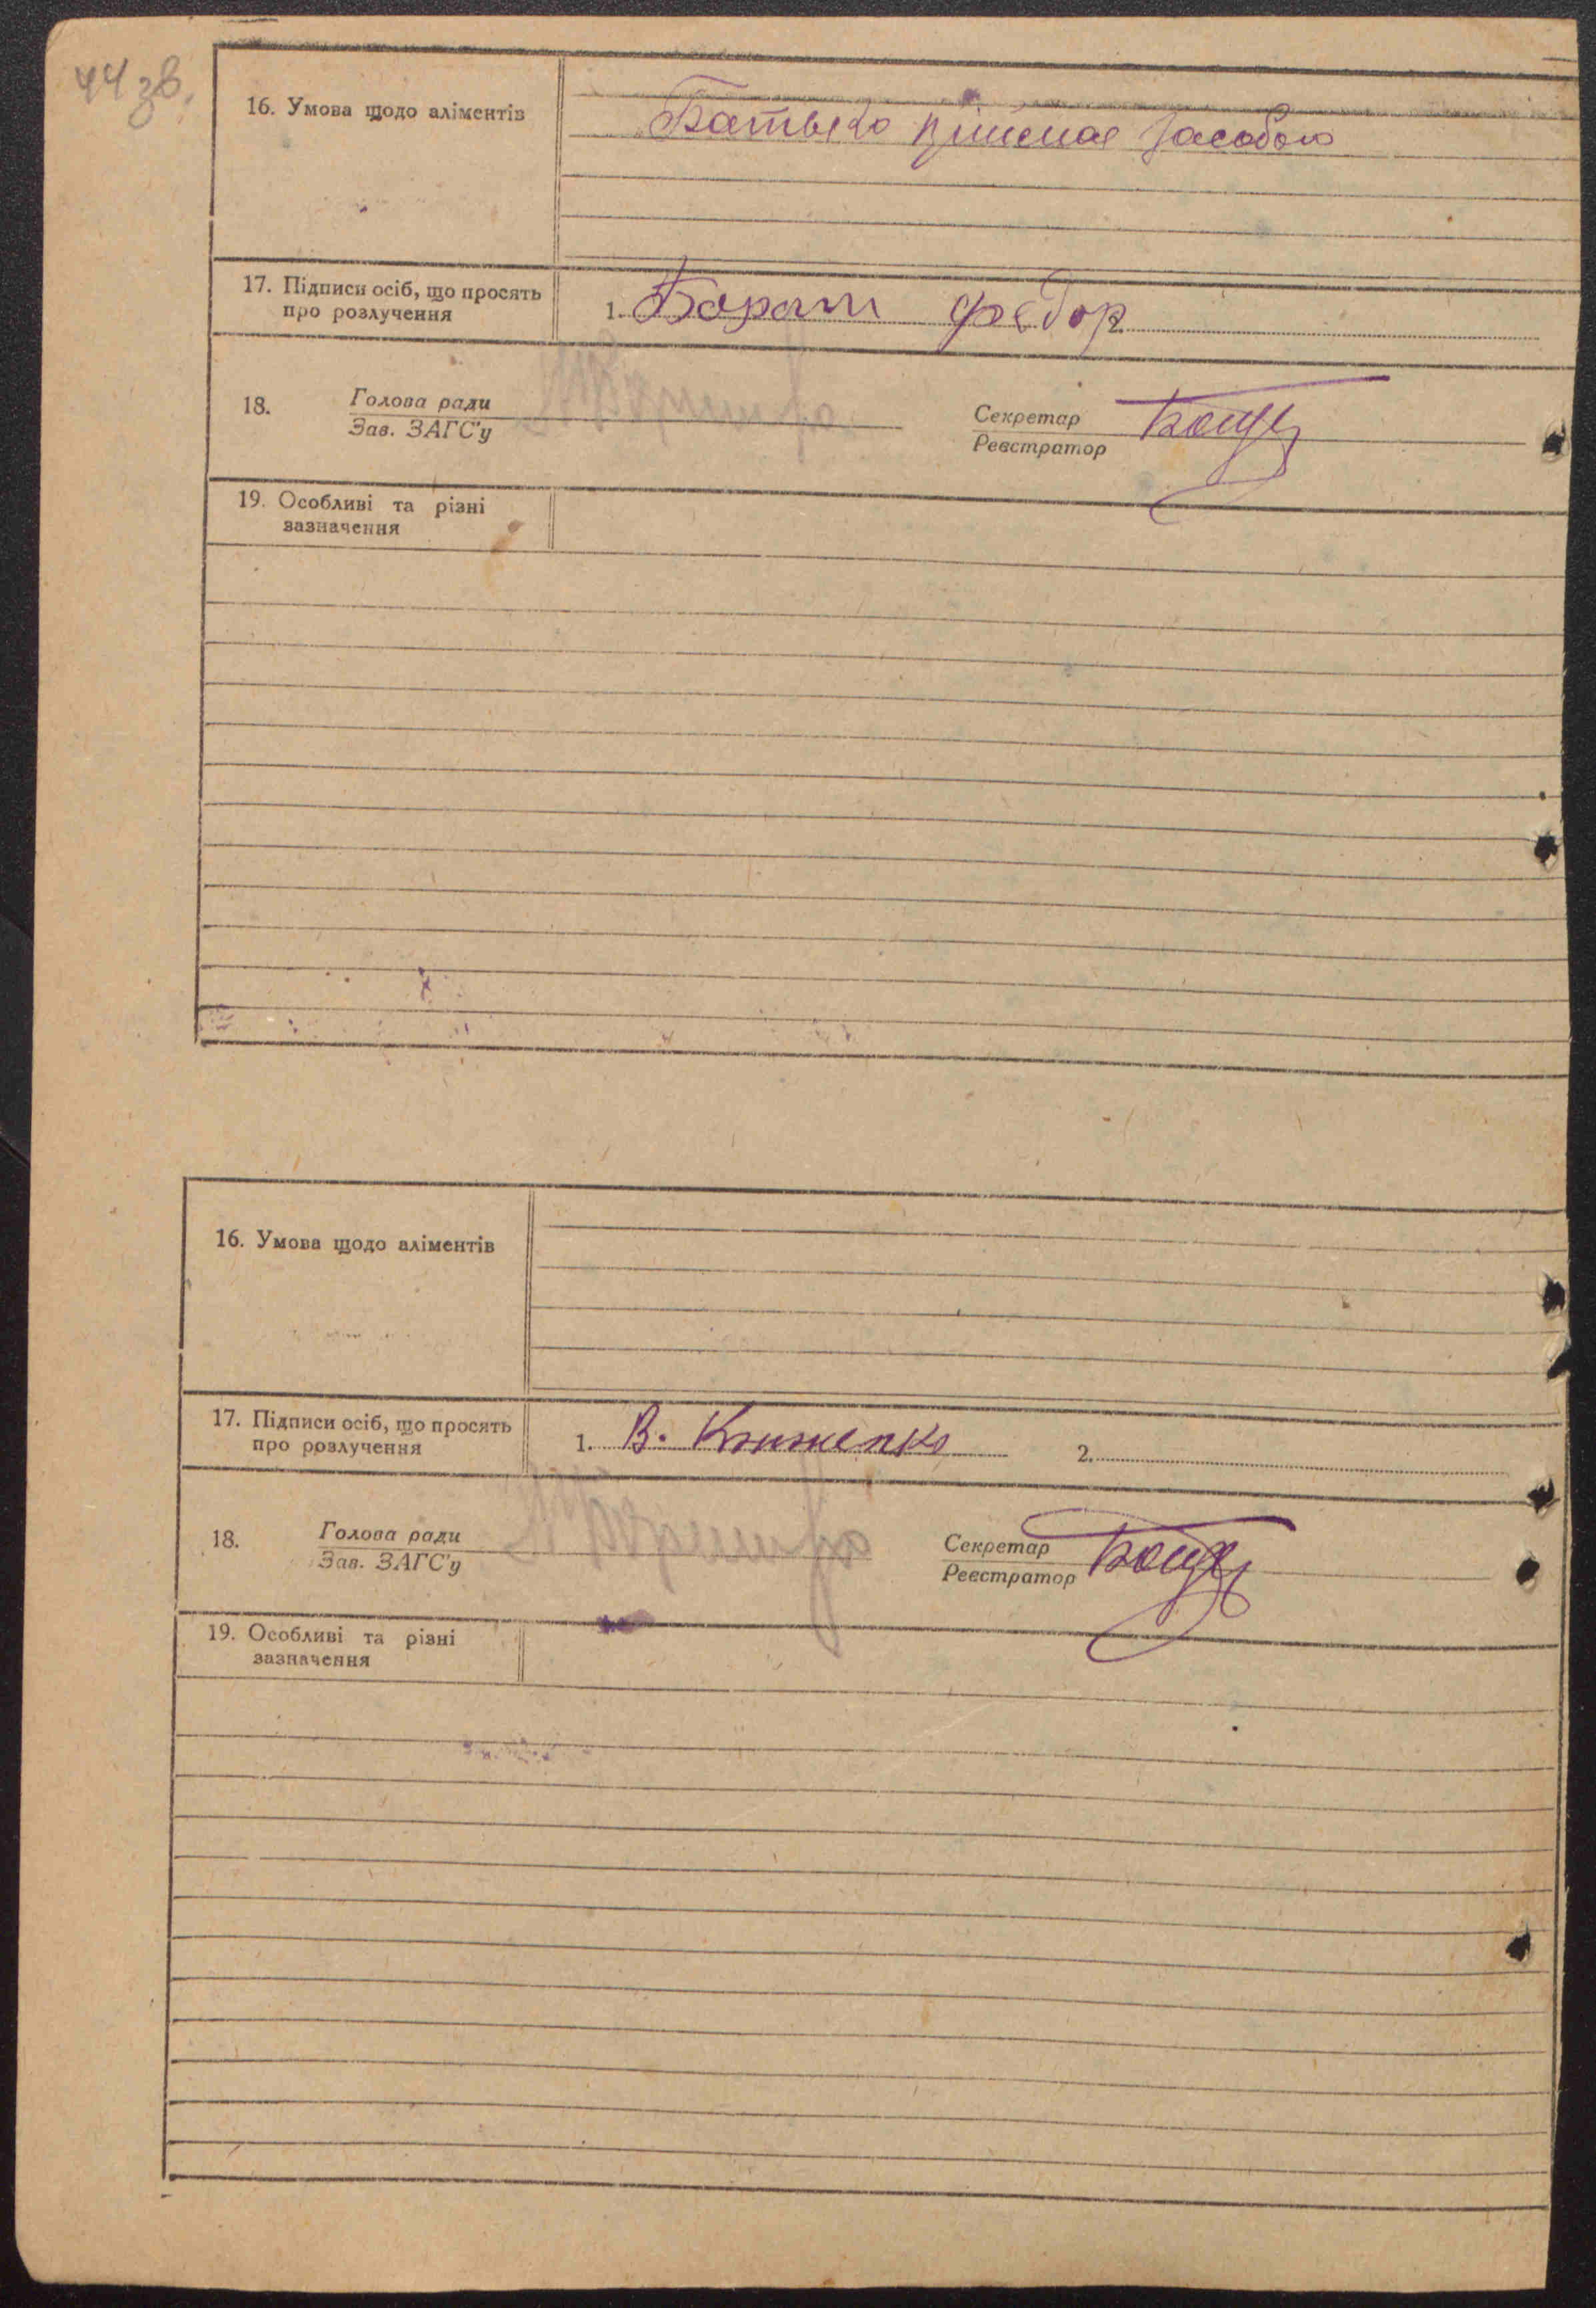 44 зв.
16. Умова щодо аліментів
Батько приймає засобою
17. Підписи осіб, що просять
про розлучення
1. Борат Федор 2.
18.
Голова ради
Зав. ЗАГС'у
Секретар
Реєстратор
19. Особливі та різні
зазначення
16. Умова щодо аліментів
17. Підписи осіб, що просять
про розлучення
1. В. Книженко 2.
18.
Голова ради
Зав. ЗАГС'у
Секретар
Реєстратор
19. Особливі та різні
зазначення